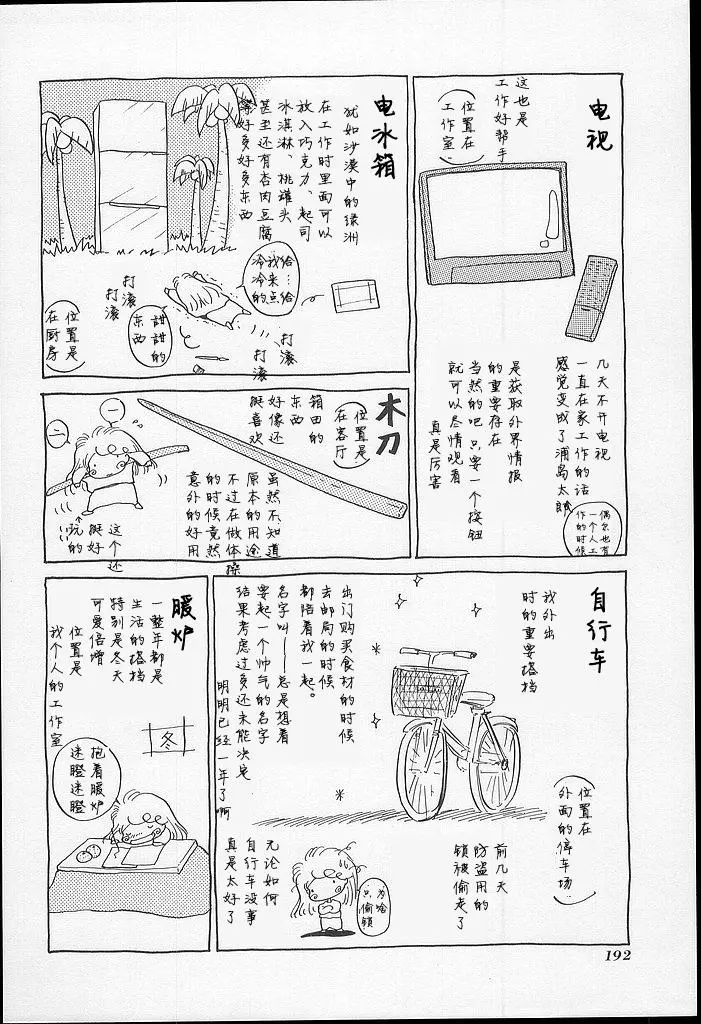 电视
这也是
工作好帮手
位置在
工作室
几天不开电视
一直在家工作的话
感觉变成了浦岛太郎
偶尔也有
一个人工
作的时候
是获取外界情报
的重要存在
当然的吧 只要一个按钮
就可以尽情观看
真是厉害
电冰箱
犹如沙漠中的绿洲
在工作时里面可以
放入巧克力、起司
冰淇淋、桃罐头
甚至还有杏肉豆腐
等好多好多东西
给…给
我来点
冷冷的
甜甜的
东西
打滚
打滚
打滚
打滚
位置是
在厨房
木刀
位置是
在客厅
箱田的
东西
好像还
挺喜欢
虽然不知道
原本的用途
不过在做体操
的时候竟然
意外的好用
一
二
这个还
挺好
玩的
自行车
我外出
时的重要搭挡
位置在
外面的停车场
出订购买食材的时候
去邮局的时候
都陪着我一起。
名字叫——总是想着
要起一个帅气的名字
结果考虑过多还未能决定
明明已经一年了啊
前几天
防盗用的
锁被偷走了
为啥
只偷锁
无论如何
自行车没事
真是太好了
暖炉
一整年都是
生活的搭挡
特别是冬天
可爱倍增
位置是
我个人的工作室
冬
抱着暖炉
迷瞪迷瞪
192